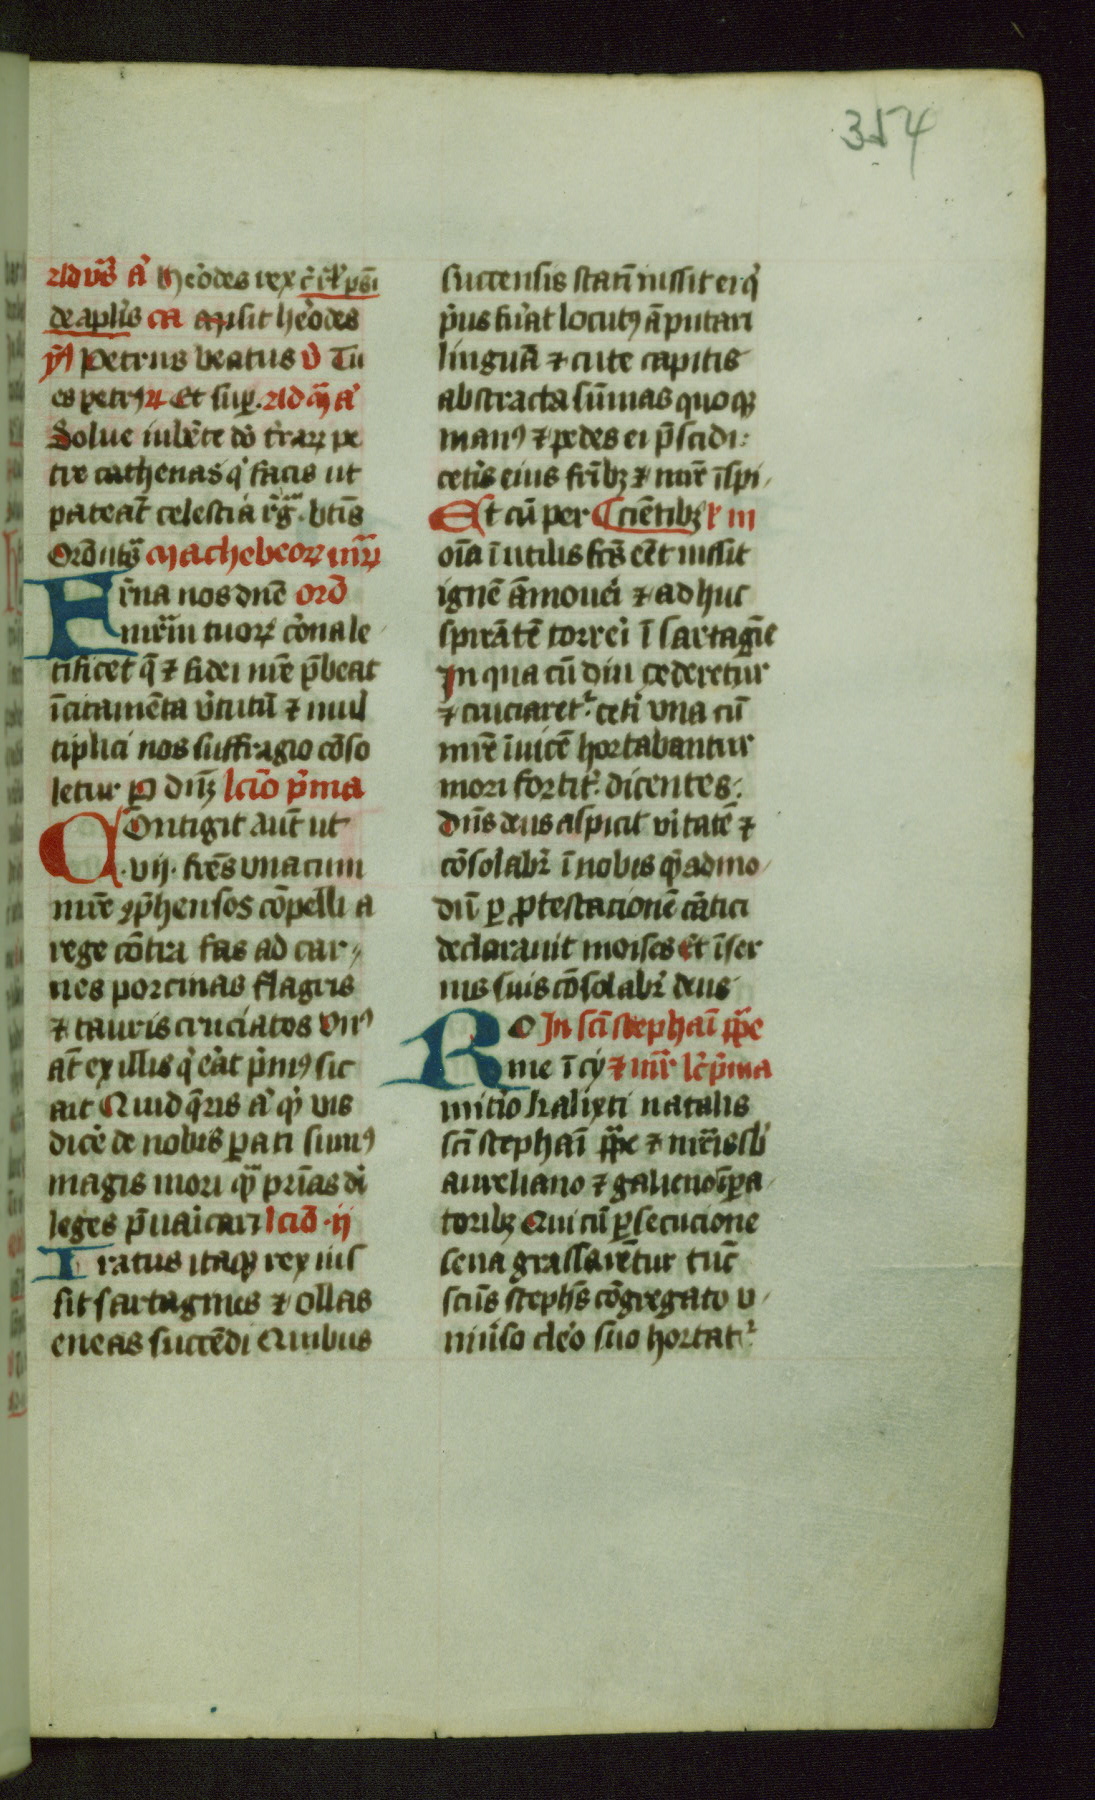 354
Ad vīs̄ ā herodes rex c̄ r̄l' ps̄i
de aplīs ca misit herodes
ym̄ Petrus beatus v̄ Tu
es petrꝰ Et suꝑ. Ad m̄ ā
Solue iubēte dō terraꝝ pe
tre cathenas q' facis ut
pateāt celestia rēgᷓ btīs
Ord vtꝰ Machebeoꝝ mr̄ꝝ
Frīna nos dnē orō
mr̄ im tuoꝝ corona le
tificet q̄ ⁊ fidei nr̄e p̄beat
īcitamēta v̓tutū ⁊ mul
tiplici nos suffragio cōso
letur ꝑ dn̄ꝫ lcīo p̄ma
COntigit aut̄ ut
.vij. frēs vna cum
mr̄e ꝯp̄hensos cōpelli a
rege cōtra fas ad car
nes porcinas flagris
⁊ tauris cruciatos vnꝰ
at̄ ex illis q' erāt p̓mꝰ sic
ait Quid q̄ris ā q̓ vis
dicē de nobis ꝑati sumꝰ
magis mori qᷓ pr̄ias di
leges p̄uaricari lciō .ij
Iratus itaqꝫ rex ius
sit sartagines ⁊ ollas
eneas succēdi Quibus
succensis statī iussit ei q'
p̓us fu̓at locutꝰ āputari
linguā ⁊ cute capitis
abstracta sūmas quoqꝫ
manꝰ ⁊ pedes ei p̄scidi:
cetīs eius fr̄ibꝫ ⁊ mr̄e īspi
Et cū per Ccientibꝫ l' iii
oīa īutilis frīs eēt iussit
ignē āmoueri ⁊ adhuc
spirātē torreri ī sartagīe
In qua cū diu cederetur
⁊ cruciaretᷣ cetī vna cū
mr̄e īuicē hortabantur
mori fortit̓ dicentes:
dn̄s deus aspicit vi̓tatē ⁊
cōsolabr̄ ī nobis qᷓadmo
dū ꝑ ꝓtestacionē cātici
declarauit moises Et ī ser
uis suis cōsolabr̄ deus
RO In scī stephaī ꝑꝑe
me ī cꝫ ⁊ mr̄ lc̄ p̄ma
mitīo kalixti natalis
scī stephaī ꝑꝑe ⁊ mr̄is sb̓
aureliano ⁊ galieno īpa
toribꝫ Qui cū ꝑsecucione
seua grassarētur tūc
scūs stephꝰ cōgregato v
niu̓so clēo suo hortatᷣ